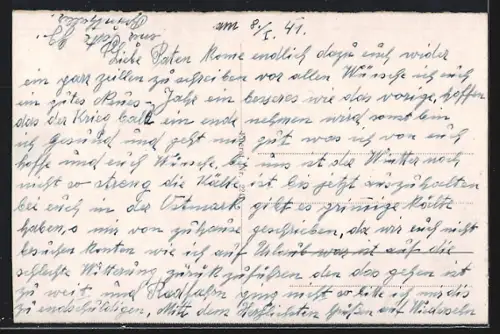 am 8./I. 41.
Liebe Paten Kome endlich dazu euch wider
ein par zeillen zu schreiben vor allen Wünsche ich euch
ein gutes Neues-Jahr ein besseres wie das vorige, hoffen
das der Krieg bald ein ende nehmen werd sonst bin
ich Gesund und geht mir gut was ich von euch
hoffe und euch Wünsche, bei uns ist der Wintter noch
nicht so streng die Kälte ist bis jetzt auszuhalten
bei euch in der Ostmark gibt es grimige kälte
haben, o mir von zuhause geschrieben, da wir euch nicht
besuchen konten wie ich auf Urlaub war ist auf die
schlechte Witterung zurük zuführen den das gehen ist
zu weit und Radfahrn ging nicht so bitte ich mir dis
zu endschuldigen, Mitt dem Herzlichsten Grüßen auf Wiedersehn